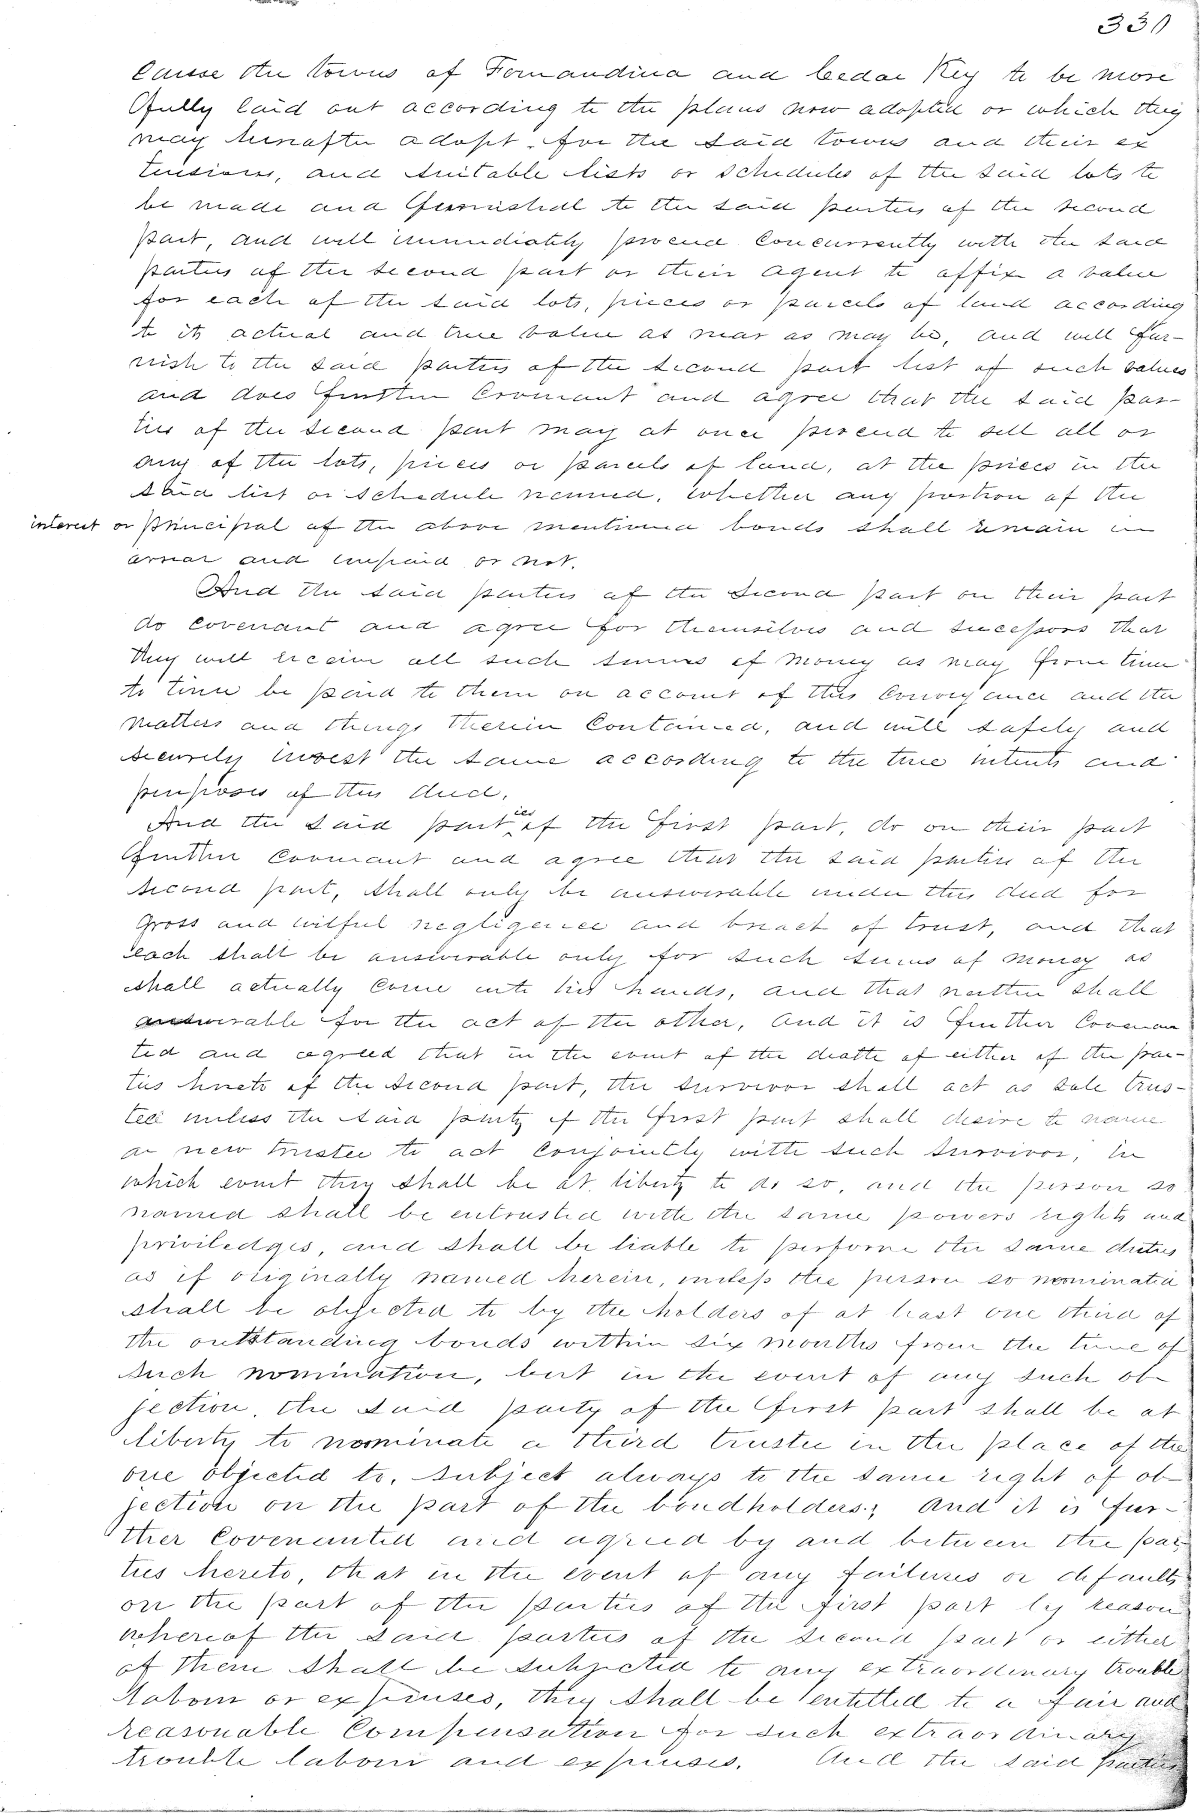 330
Cause the towns of Fernandina and Cedar Key to be more
fully laid out according to the plans now adopted or which they
may hereafter adopt for the said towns and their ex
tensions, and suitable lists or schedules of the said lots to
be made and furnished to the said parties of the second
part, and will immediately proceed concurrently with the said
parties of the second part or their agent to affix a value
for each of the said lots, pieces or parcels of land according
to its actual and true value as near as may be, and will fur-
nish to the said parties of the second part list of such values
and does further Covenant and agree that the said par-
ties of the second part may at once proceed to sell all or
any of the lots, pieces or parcels of land, at the prices in the
said list or schedule named, whether any portion of the
interest or principal of the above mentioned bonds shall remain in
arrear and unpaid or not.
And the said parties of the second part on their part
do covenant and agree for themselves and successors that
they will receive all such sums of money as may from time
to time be paid to them on account of this Conveyance and the
matters and things therein Contained, and will safely and
securely invest the same according to the true intents and
purposes of this deed.
And the said parties of the first part, do on their part
further Covenant and agree that the said parties of the
second part, shall only be answerable under this deed for
gross and wilful negligence and breach of trust, and that
each shall be answerable only for such sums of money as
shall actually come into his hands, and that neither shall
answerable for the act of the other, and it is further Covenan
ted and agreed that in the event of the death of either of the par-
ties hereto of the second part, the survivor shall act as sole trus-
tee unless the said party of the first part shall desire to name
a new trustee to act Conjointly with such survivor, in
which event they shall be at liberty to do so, and the person so
named shall be entrusted with the same powers rights and
priviledges, and shall be liable to perform the same duties
as if originally named herein, unless the person so nominated
shall be objected to by the holders of at least one third of
the outstanding bonds within six months from the time of
such nomination, but in the event of any such ob-
jection, the said party of the first part shall be at
liberty to nominate a third trustee in the place of the
one objected to, subject always to the same right of ob-
jection on the part of the bondholders; and it is fur-
ther Covenanted and agreed by and between the par-
ties hereto, that in the event of any failures or defaults
on the part of the parties of the first part by reason
whereof the said parties of the second part or either
of them shall be subjected to any extraordinary trouble
labour or expenses, they shall be entitled to a fair and
reasonable Compensation for such extraordinary
trouble labour and expenses. And the said parties